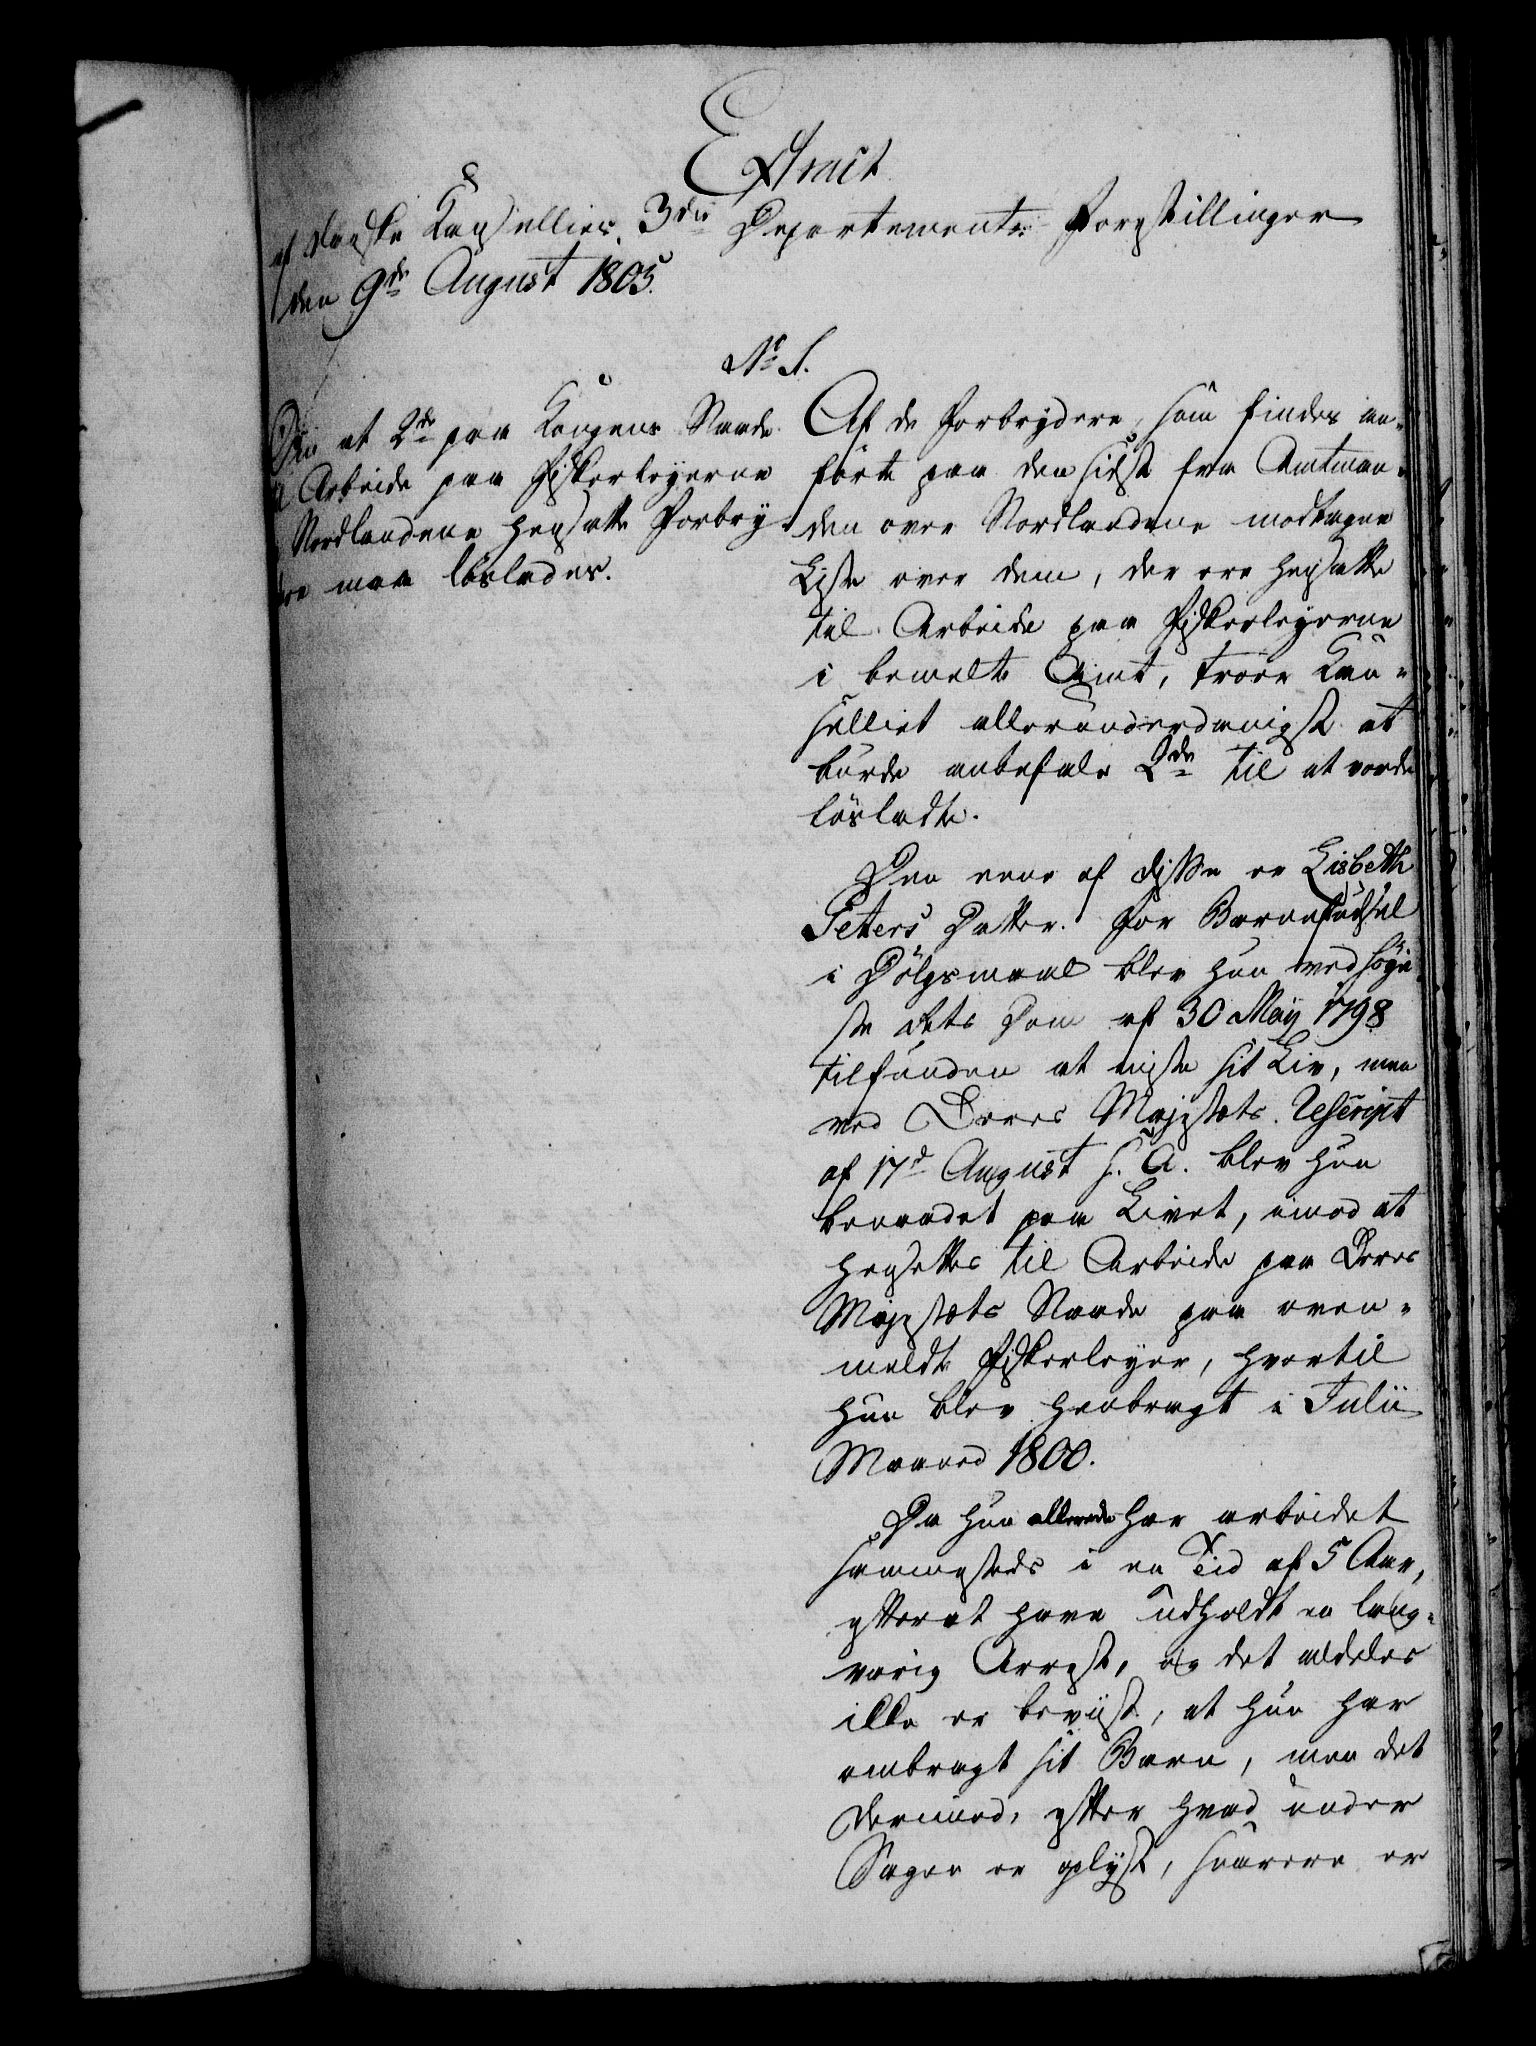 Extract
af danske Kancelliets 3die Departements Forestillinger
den 9de August 1805.
No 1.
Om at 2de paa Kongens Naade
Arbeide paa Fiskerleyerne
Nordlandene hensatte Forbry-
dere maa løslades.
Af de Forbrydere, som findes an-
førte paa den sidst fra Amtman-
den over Nordlandene modtagne
Liste over dem, der ere hensatte
til Arbeide paa Fiskerleyerne
i bemeldte Amt, troer Can-
celliet allerunderdanigst at
burde anbefale 2de til at vorde
løsladte.
Den eene af disse er Lisbeth
Peters Datter. For Barnefødsel
i Dølgsmaal blev hun ved Høye-
ste Rets Dom af 30 May 1798
tilfunden at miste sit Liv, men
ved Deres Majestæts Rescript
af 17d August s. A. blev hun
benaadet paa Livet, imod at
hensættes til Arbeide paa Deres
Majestæts Naade paa oven-
meldte Fiskerleyer, hvortil
hun blev henbragt i Julii
Maaned 1800.
Da hun allerede har arbeidet
sammesteds i en Tid af 5 Aar,
efter at have udholdt en lang-
varig Arrest, og det aldeles
ikke er beviist, at hun har
ombragt sit Barn, men det
derimod, efter hvad under
Sagen er oplyst, snarere er